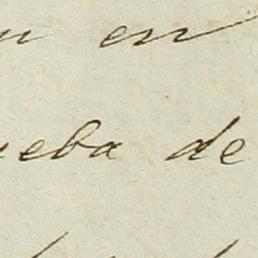 en
ueba de